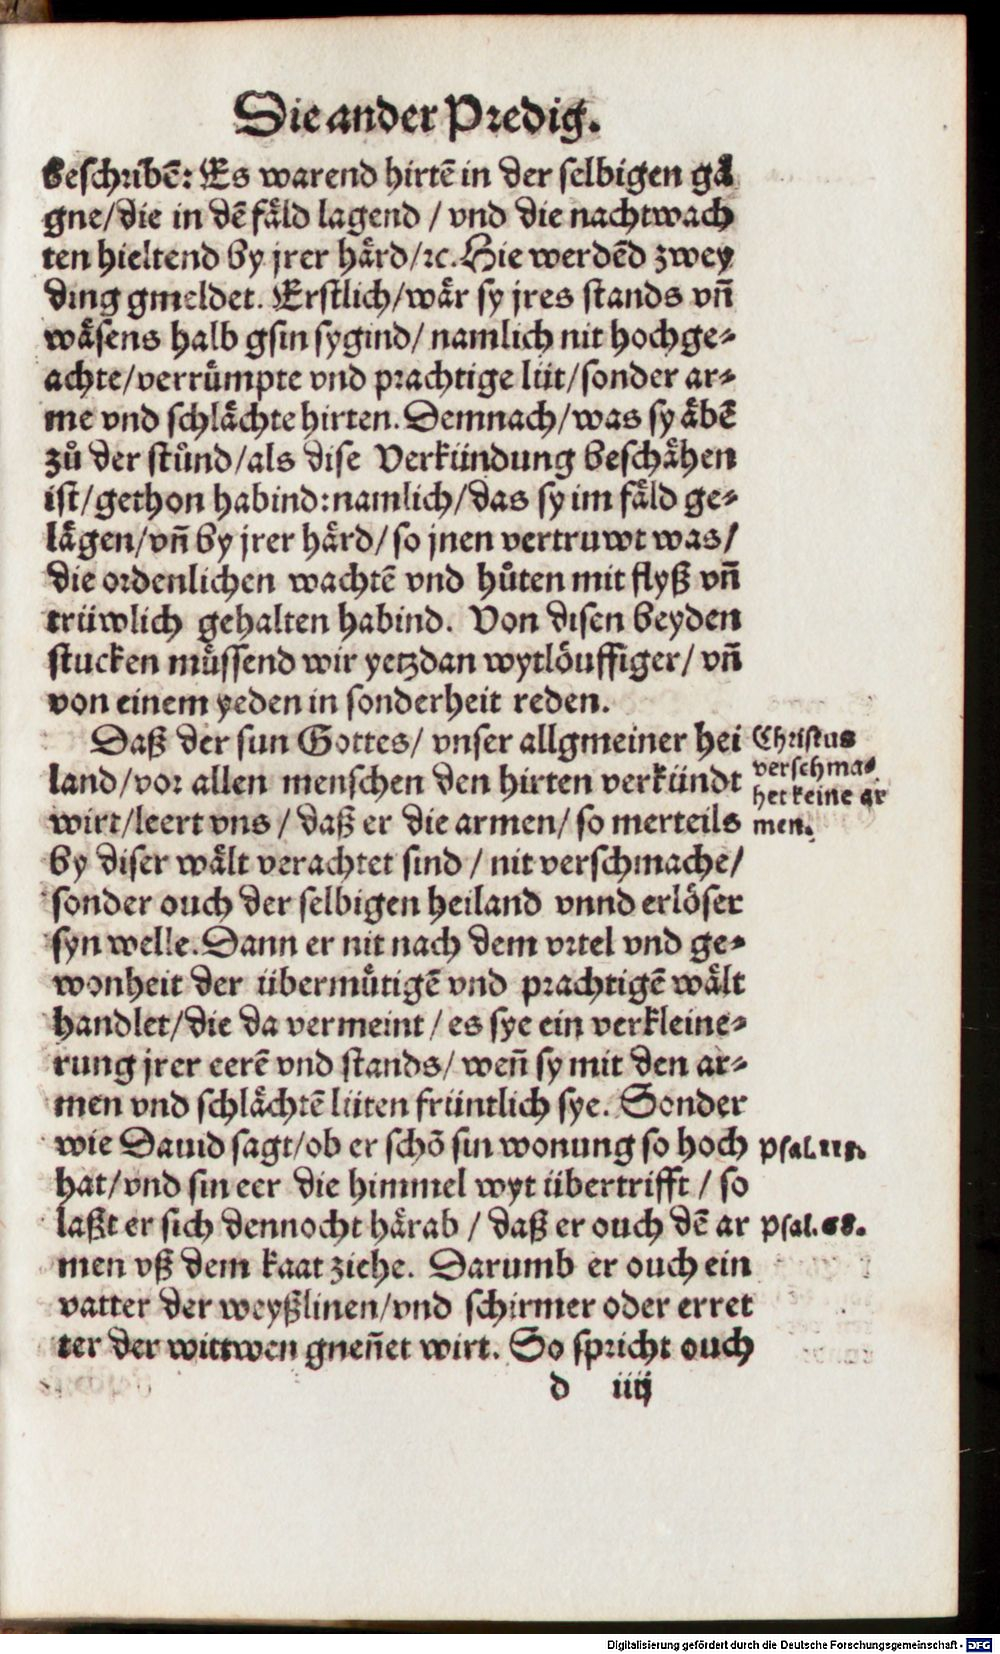 Die ander Predig.
beschribẽ: Es warend hirtẽ in der selbigen gä
gne/die in dẽ fäld lagend / vnd die nachtwach
ten hieltend by jrer härd/ꝛc. Hie werdẽd zwey
ding gmeldet. Erstlich/wär sy jres stands vñ
wäsens halb gsin sygind/ namlich nit hochge⸗
achte/verrümpte vnd prachtige lüt/sonder ar⸗
me vnd schlächte hirten. Demnach/was sy äbẽ
zů der stůnd/als dise Verkündung beschähen
ist/gethon habind: namlich/das sy im fäld ge⸗
lägen/vñ by jrer härd/ so jnen vertruwt was/
die ordenlichen wachtẽ vnd hůten mit flyß vñ
trüwlich gehalten habind. Von disen beyden
stucken müssend wir yetzdan wytlöuffiger/ vñ
von einem yeden in sonderheit reden.
Daß der sun Gottes/ vnser allgmeiner hei
land/vor allen menschen den hirten verkündt
wirt/leert vns / daß er die armen/ so merteils
by diser wält verachtet sind / nit verschmache/
sonder ouch der selbigen heiland vnnd erlöser
syn welle. Dann er nit nach dem vrtel vnd ge⸗
wonheit der übermůtigẽ vnd prachtigẽ wält
handlet/die da vermeint / es sye ein verkleine⸗
rung jrer eerẽ vnd stands/ weñ sy mit den ar⸗
men vnd schlächtẽ lüten früntlich sye. Sonder
wie Dauid sagt/ob er schõ sin wonung so hoch
hat/vnd sin eer die himmel wyt übertrifft / so
laßt er sich dennocht härab / daß er ouch dẽ ar
men vß dem kaat ziehe. Darumb er ouch ein
vatter der weyßlinen/vnd schirmer oder erret
ter der wittwen gneñet wirt. So spricht ouch
d iiij
Christus
verschma⸗
het keine ar
men.
Psal.113.
Psal.68.
Digitalisierung gefördert durch die Deutsche Forschungsgemeinschaft - DFG